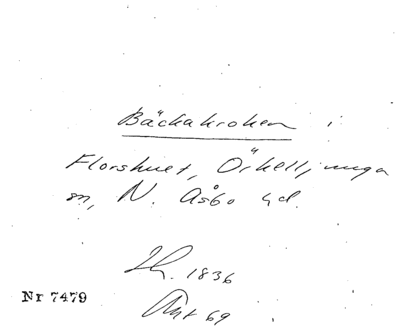 Bäckakroken i
Florshult, Örkelljunga
sn, N. Åsbo hd.
1836
Nr 7479
Akt 69